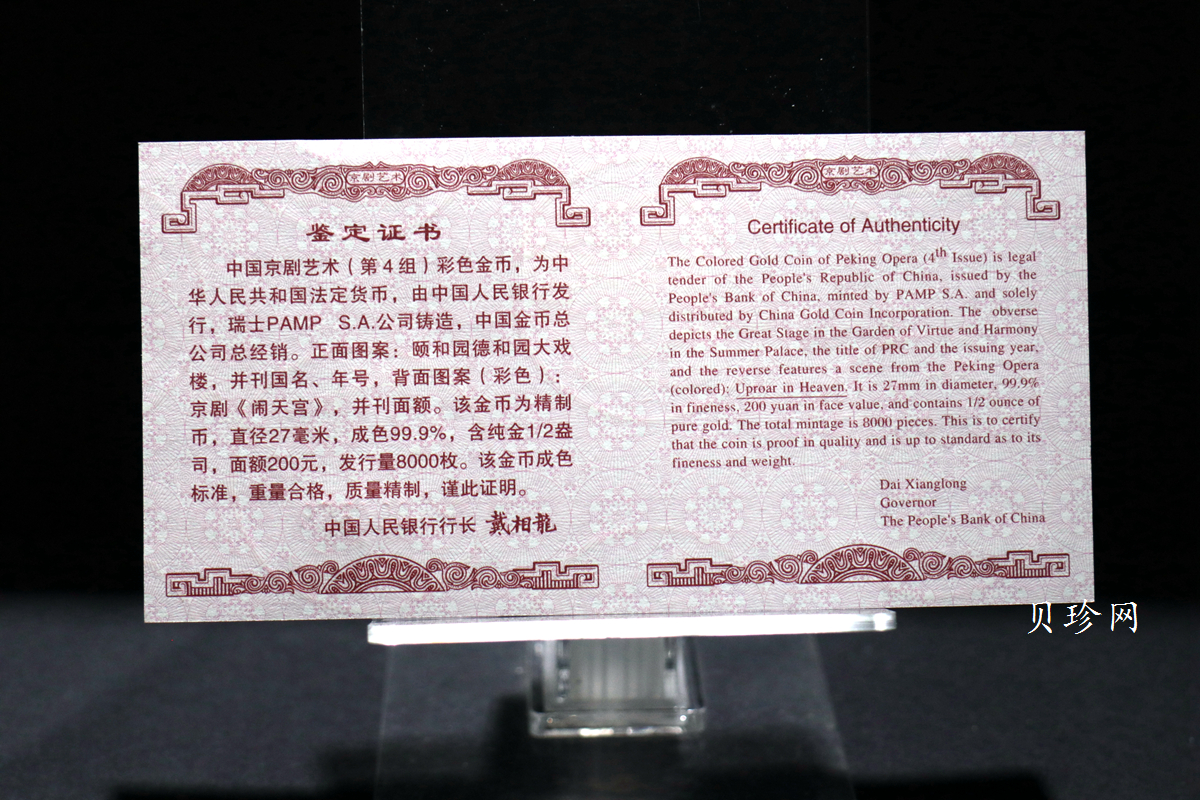 京剧艺术
鉴定证书
中国京剧艺术（第4组）彩色金币，为中
华人民共和国法定货币，由中国人民银行发
行，瑞士PAMP S.A.公司铸造，中国金币总
公司总经销。正面图案：颐和园德和园大戏
楼，并刊国名、年号，背面图案（彩色）：
京剧《闹天宫》，并刊面额。该金币为精制
币，直径27毫米，成色99.9%，含纯金1/2盎
司，面额200元，发行量8000枚。该金币成色
标准，重量合格，质量精制，谨此证明。
中国人民银行行长 戴相龍
京剧艺术
Certificate of Authenticity
The Colored Gold Coin of Peking Opera (4th Issue) is legal
tender of the People's Republic of China, issued by the
People's Bank of China, minted by PAMP S.A. and solely
distributed by China Gold Coin Incorporation. The obverse
depicts the Great Stage in the Garden of Virtue and Harmony
in the Summer Palace, the title of PRC and the issuing year,
and the reverse features a scene from the Peking Opera
(colored): Uproar in Heaven. It is 27mm in diameter, 99.9%
in fineness, 200 yuan in face value, and contains 1/2 ounce of
pure gold. The total mintage is 8000 pieces. This is to certify
that the coin is proof in quality and is up to standard as to its
fineness and weight.
Dai Xianglong
Governor
The People's Bank of China
贝珍网